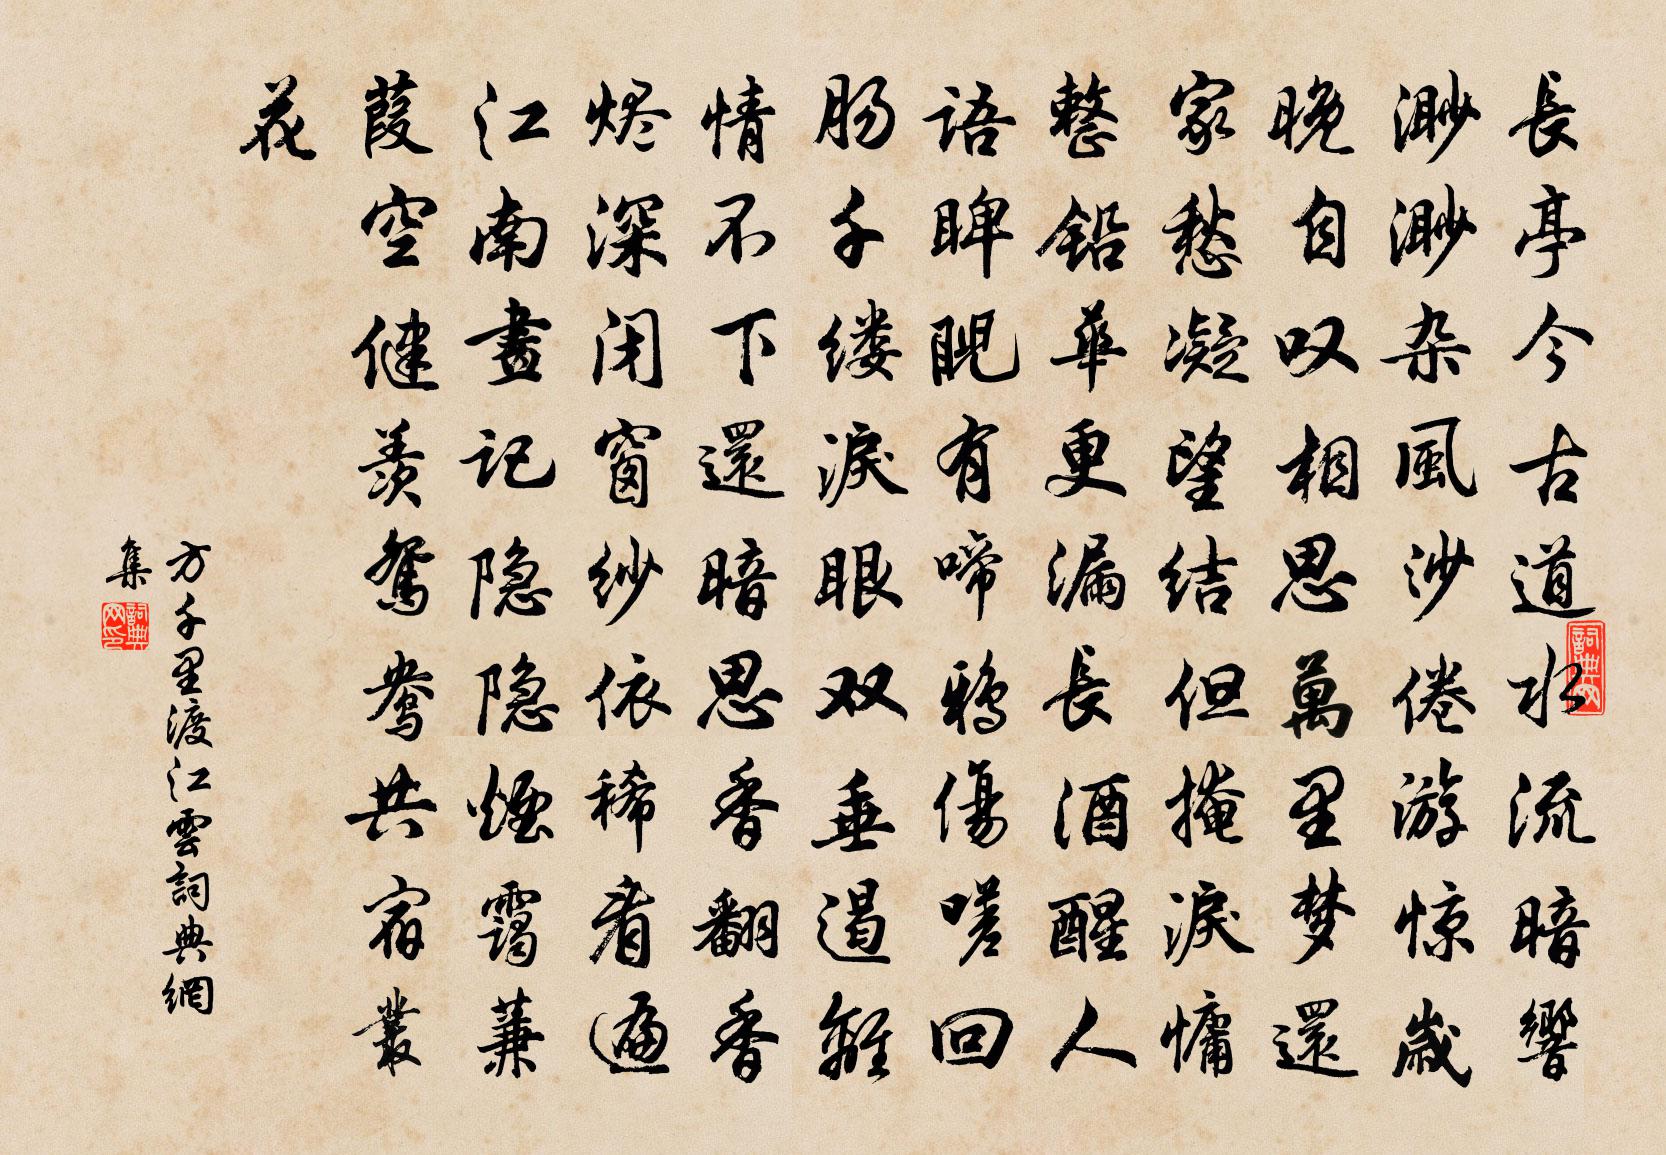 長亭今古道水流暗響
渺渺杂風沙倦游惊歲
晚自叹相思萬里梦還
家愁凝望结但掩淚慵
整鉛華更漏長酒醒人
語睥睨有啼鴉傷嗟回
肠千缕淚眼双垂遏離
情不下還暗思香翻香
烬深闭窗纱依稀看遍
江南畫记隐隐煙靄蒹
葭空健羡鴛鴦共宿叢
花
方千里渡江雲詞典網
集
詞典网
詞典网印